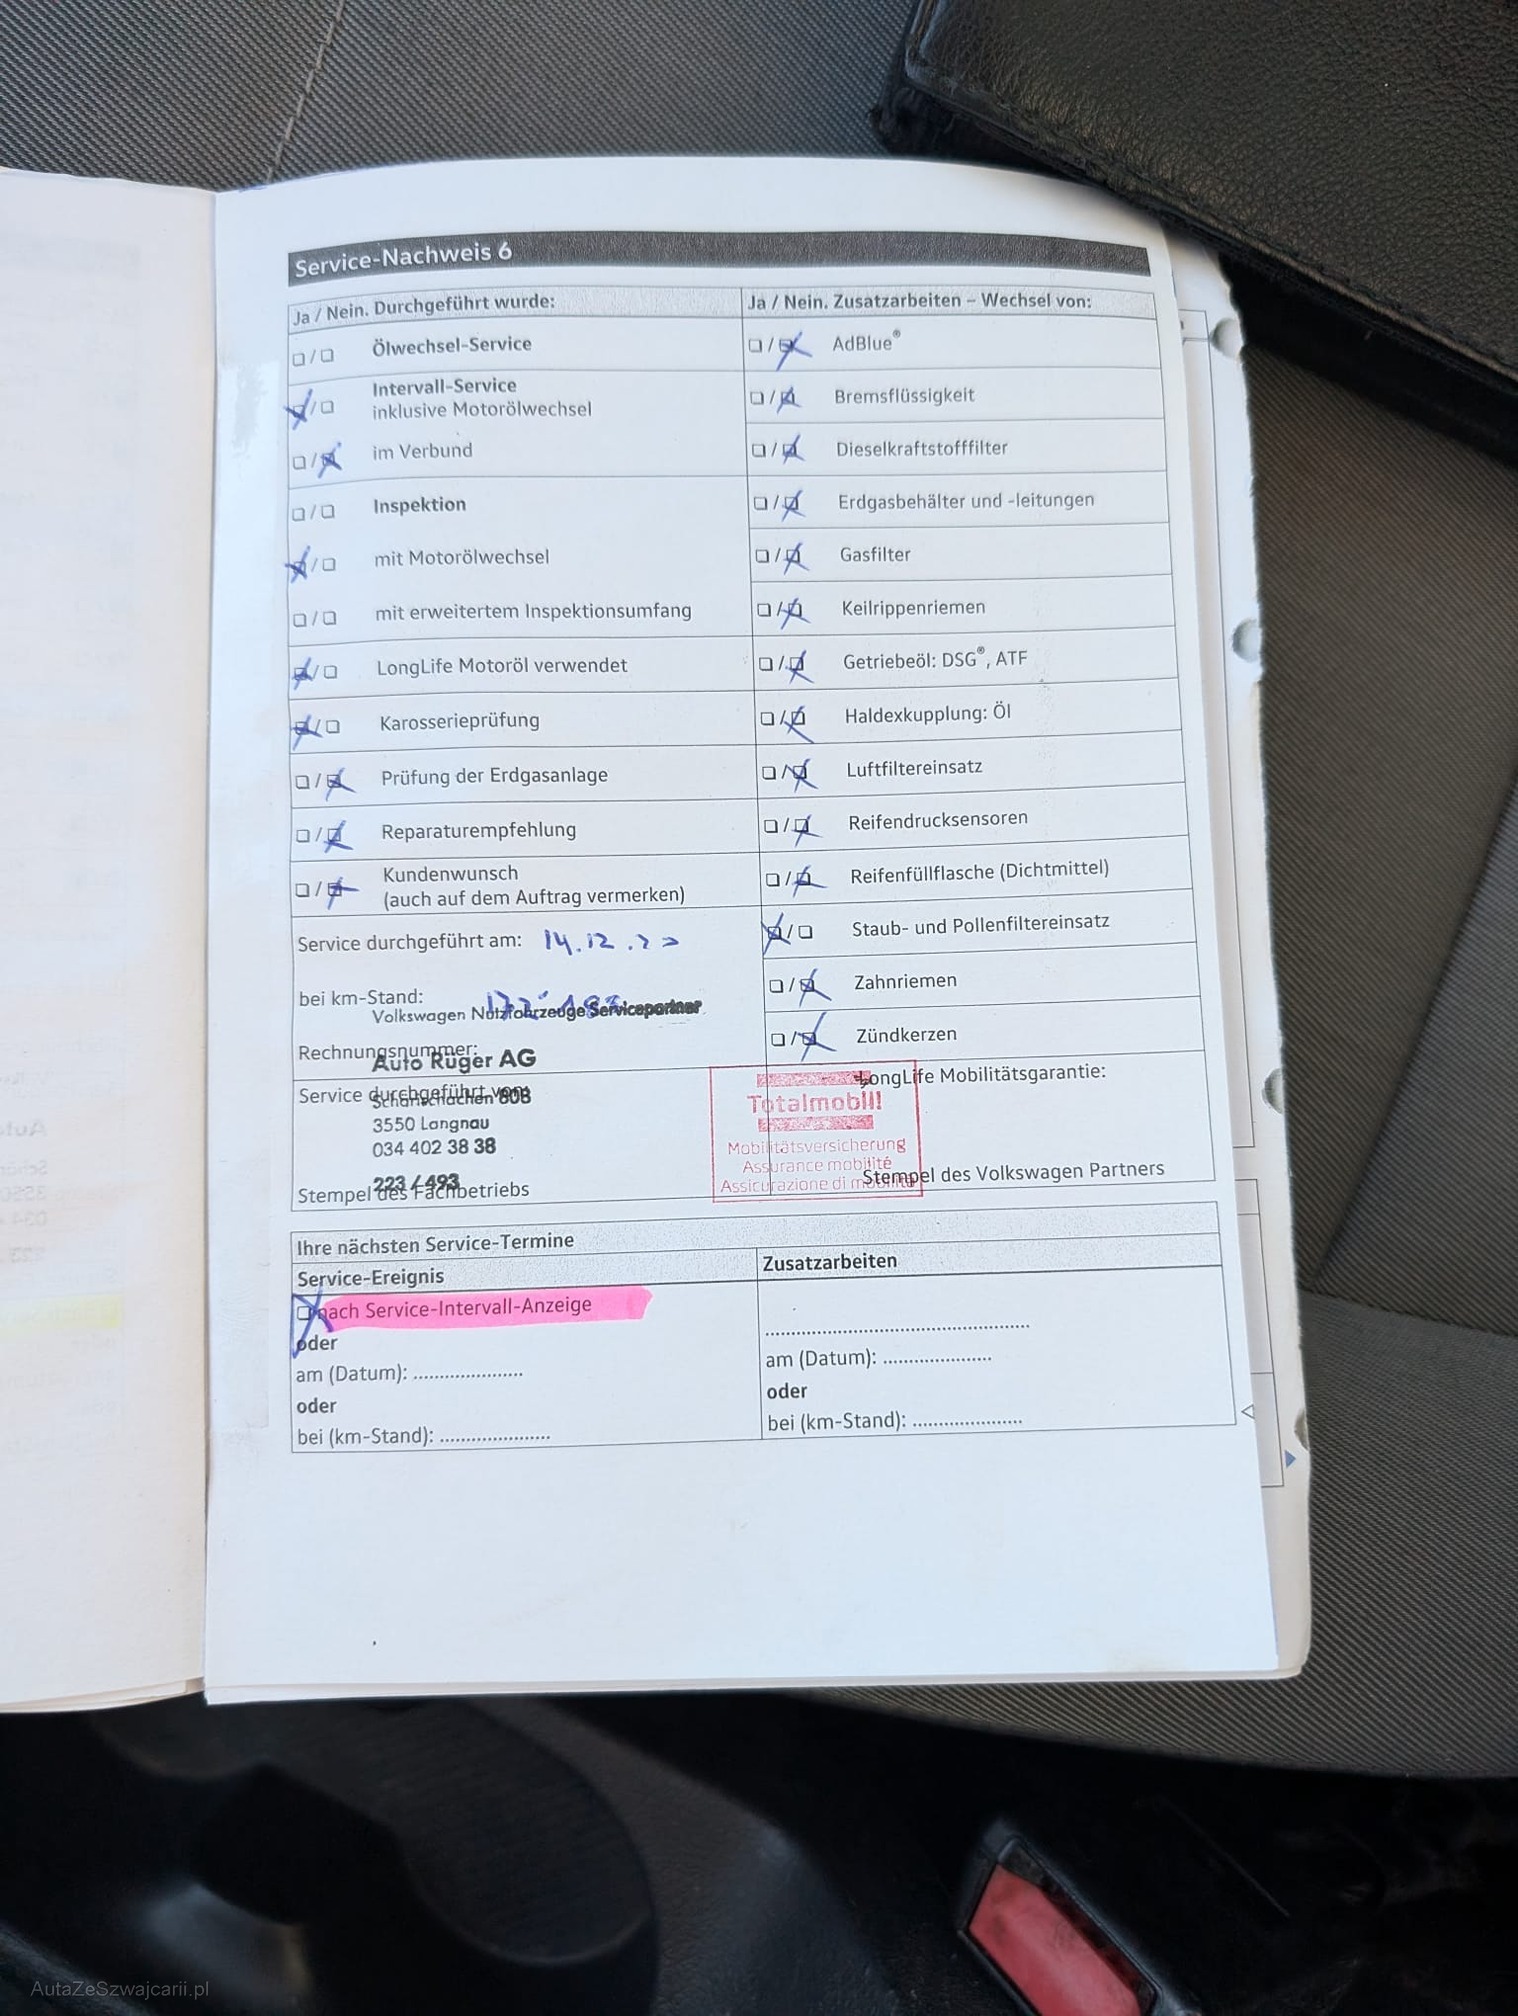 Service-Nachweis 6
Ja / Nein. Durchgeführt wurde:
Ölwechsel-Service
Intervall-Service
inklusive Motorölwechsel
im Verbund
Inspektion
mit Motorölwechsel
mit erweitertem Inspektionsumfang
LongLife Motoröl verwendet
Karosserieprüfung
Prüfung der Erdgasanlage
Reparaturempfehlung
Kundenwunsch
(auch auf dem Auftrag vermerken)
Service durchgeführt am: 14.12.20
bei km-Stand:
Volkswagen Nutzfahrzeuge Servicepartner
Rechnungsnummer:
Auto Rüger AG
Service durchgeführt von:
3550 Langnau
034 402 38 38
223 / 493
Stempel des Fachbetriebs
Ja / Nein. Zusatzarbeiten – Wechsel von:
AdBlue®
Bremsflüssigkeit
Dieselkraftstofffilter
Erdgasbehälter und -leitungen
Gasfilter
Keilrippenriemen
Getriebeöl: DSG®, ATF
Haldexkupplung: Öl
Luftfiltereinsatz
Reifendrucksensoren
Reifenfüllflasche (Dichtmittel)
Staub- und Pollenfiltereinsatz
Zahnriemen
Zündkerzen
LongLife Mobilitätsgarantie:
Totalmobil!
Mobilitätsversicherung
Assurance mobilité
Assicurazione di mobilità
Stempel des Volkswagen Partners
Ihre nächsten Service-Termine
Service-Ereignis
nach Service-Intervall-Anzeige
oder
am (Datum): .....................
oder
bei (km-Stand): .....................
Zusatzarbeiten
..................................................
am (Datum): .....................
oder
bei (km-Stand): .....................
AutaZeSzwajcarii.pl